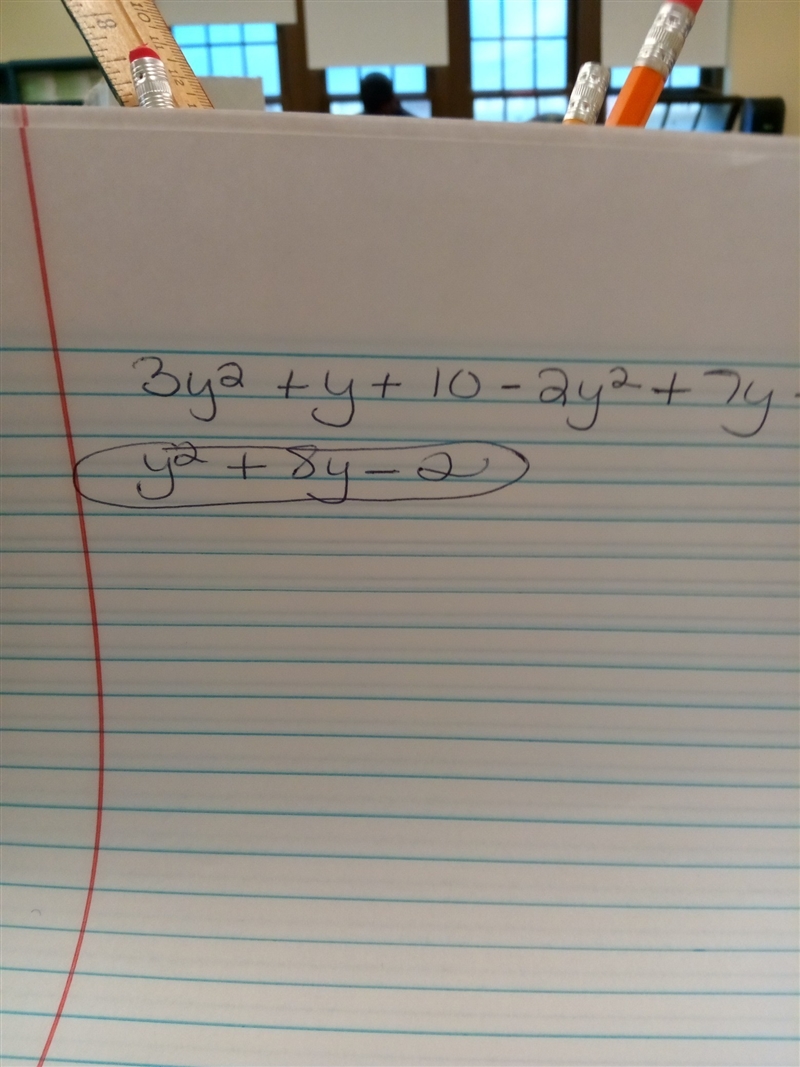 3y² + y + 10 - 2y² + 7y -
y² + 8y - 2